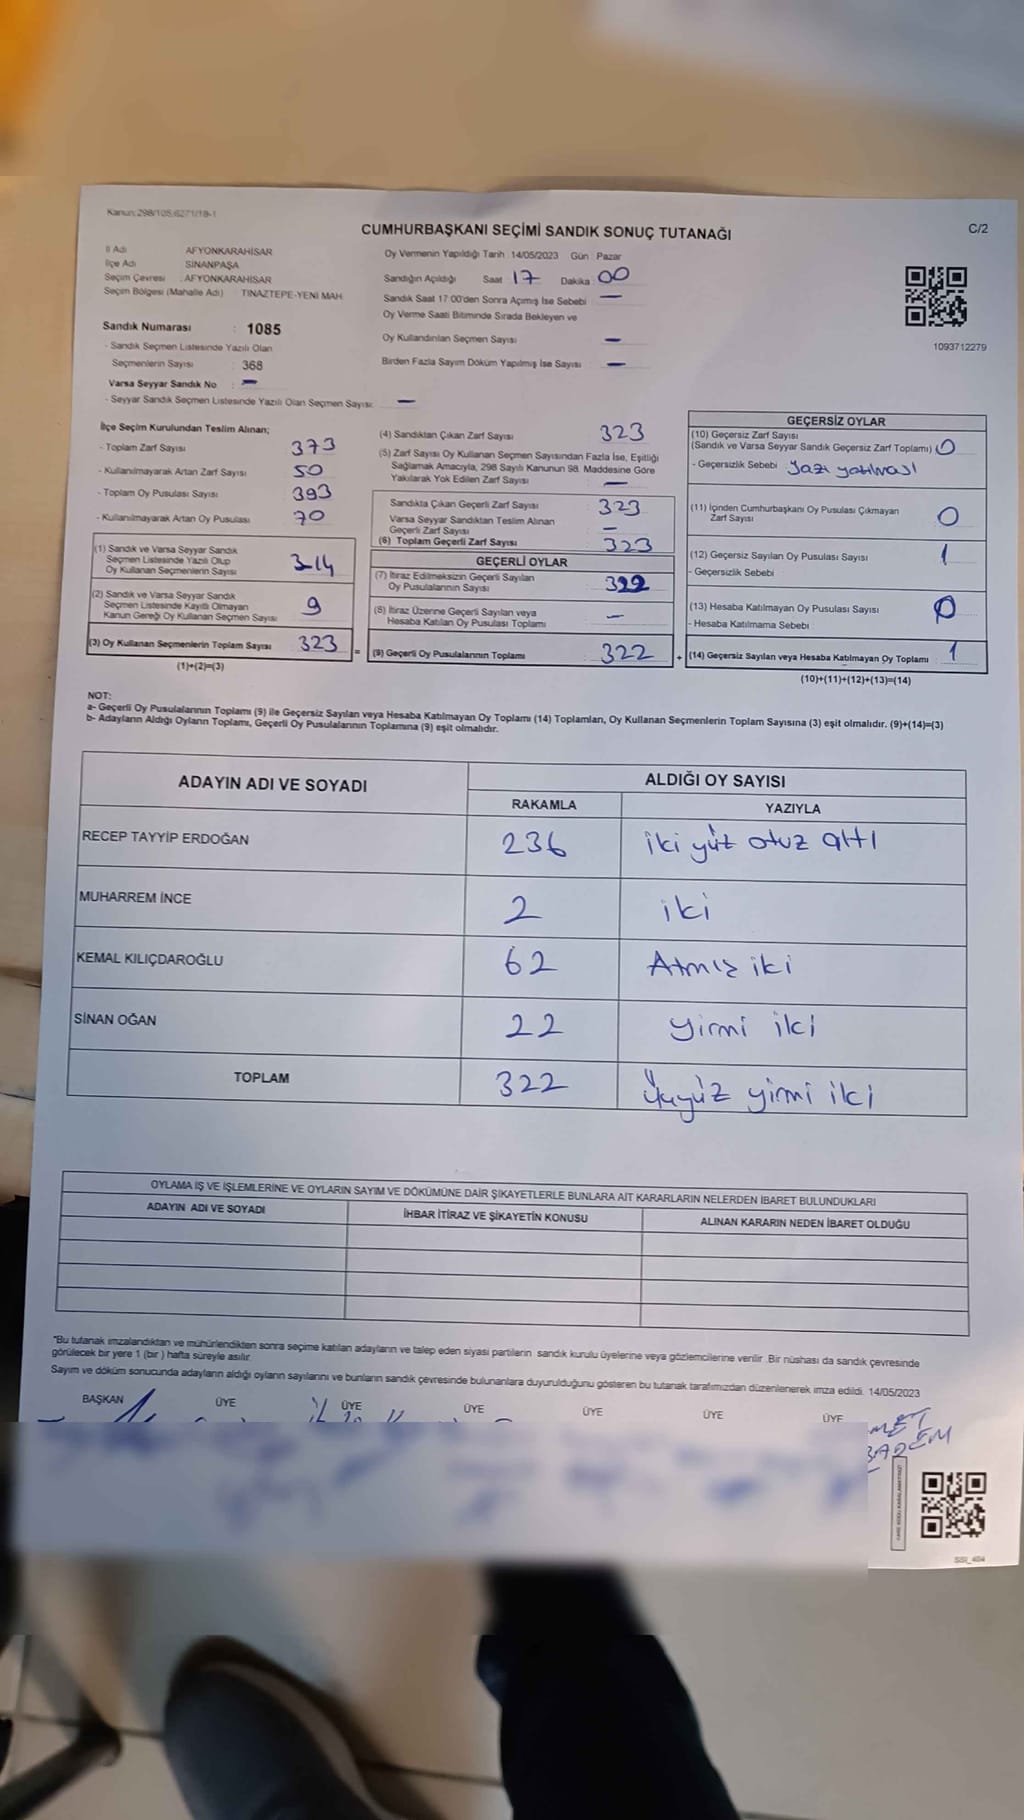 Kanun:298/105,6271/18-1
CUMHURBAŞKANI SEÇİMİ SANDIK SONUÇ TUTANAĞI
C/2
İl Adı AFYONKARAHİSAR
İlçe Adı SİNANPAŞA
Seçim Çevresi : AFYONKARAHİSAR
Seçim Bölgesi (Mahalle Adı) TINAZTEPE-YENİ MAH.
Sandık Numarası : 1085
- Sandık Seçmen Listesinde Yazılı Olan
Seçmenlerin Sayısı : 368
Varsa Seyyar Sandık No : —
- Seyyar Sandık Seçmen Listesinde Yazılı Olan Seçmen Sayısı: —
Oy Vermenin Yapıldığı Tarih 14/05/2023 Gün Pazar
Sandığın Açıldığı Saat 17 Dakika 00
Sandık Saat 17:00'den Sonra Açımış İse Sebebi —
Oy Verme Saati Bitiminde Sırada Bekleyen ve
Oy Kullandırılan Seçmen Sayısı —
Birden Fazla Sayım Döküm Yapılmış İse Sayısı —
1093712279
İlçe Seçim Kurulundan Teslim Alınan;
- Toplam Zarf Sayısı 373
- Kullanılmayarak Artan Zarf Sayısı 50
- Toplam Oy Pusulası Sayısı 393
- Kullanılmayarak Artan Oy Pusulası 70
(1) Sandık ve Varsa Seyyar Sandık
Seçmen Listesinde Yazılı Olup
Oy Kullanan Seçmenlerin Sayısı 314
(2) Sandık ve Varsa Seyyar Sandık
Seçmen Listesinde Kayıtlı Olmayan
Kanun Gereği Oy Kullanan Seçmen Sayısı 9
(3) Oy Kullanan Seçmenlerin Toplam Sayısı 323 =
(1)+(2)=(3)
(4) Sandıktan Çıkan Zarf Sayısı 323
(5) Zarf Sayısı Oy Kullanan Seçmen Sayısından Fazla İse, Eşitliği
Sağlamak Amacıyla, 298 Sayılı Kanunun 98. Maddesine Göre
Yakılarak Yok Edilen Zarf Sayısı —
Sandıkta Çıkan Geçerli Zarf Sayısı 323
Varsa Seyyar Sandıktan Teslim Alınan
Geçerli Zarf Sayısı —
(6) Toplam Geçerli Zarf Sayısı 323
GEÇERLİ OYLAR
(7) İtiraz Edilmeksizin Geçerli Sayılan
Oy Pusulalarının Sayısı 322
(8) İtiraz Üzerine Geçerli Sayılan veya
Hesaba Katılan Oy Pusulası Toplamı —
(9) Geçerli Oy Pusulalarının Toplamı 322 +
GEÇERSİZ OYLAR
(10) Geçersiz Zarf Sayısı
(Sandık ve Varsa Seyyar Sandık Geçersiz Zarf Toplamı) 0
- Geçersizlik Sebebi
(11) İçinden Cumhurbaşkanı Oy Pusulası Çıkmayan
Zarf Sayısı 0
(12) Geçersiz Sayılan Oy Pusulası Sayısı 1
- Geçersizlik Sebebi
(13) Hesaba Katılmayan Oy Pusulası Sayısı 0
- Hesaba Katılmama Sebebi
(14) Geçersiz Sayılan veya Hesaba Katılmayan Oy Toplamı 1
(10)+(11)+(12)+(13)=(14)
NOT:
a- Geçerli Oy Pusulalarının Toplamı (9) ile Geçersiz Sayılan veya Hesaba Katılmayan Oy Toplamı (14) Toplamları, Oy Kullanan Seçmenlerin Toplam Sayısına (3) eşit olmalıdır. (9)+(14)=(3)
b- Adayların Aldığı Oyların Toplamı, Geçerli Oy Pusulalarının Toplamına (9) eşit olmalıdır.
ADAYIN ADI VE SOYADI ALDIĞI OY SAYISI
RAKAMLA YAZIYLA
RECEP TAYYİP ERDOĞAN 236 iki yüz otuz altı
MUHARREM İNCE 2 iki
KEMAL KILIÇDAROĞLU 62 Atmış iki
SİNAN OĞAN 22 yirmi iki
TOPLAM 322 Üçyüz yirmi iki
OYLAMA İŞ VE İŞLEMLERİNE VE OYLARIN SAYIM VE DÖKÜMÜNE DAİR ŞİKAYETLERLE BUNLARA AİT KARARLARIN NELERDEN İBARET BULUNDUKLARI
ADAYIN ADI VE SOYADI İHBAR İTİRAZ VE ŞİKAYETİN KONUSU ALINAN KARARIN NEDEN İBARET OLDUĞU
"Bu tutanak imzalandıktan ve mühürlendikten sonra seçime katılan adayların ve talep eden siyasi partilerin sandık kurulu üyelerine veya gözlemcilerine verilir. Bir nüshası da sandık çevresinde
görülecek bir yere 1 (bir) hafta süreyle asılır.
Sayım ve döküm sonucunda adayların aldığı oyların sayılarını ve bunların sandık çevresinde bulunanlara duyurulduğunu gösteren bu tutanak tarafımızdan düzenlenerek imza edildi. 14/05/2023
BAŞKAN ÜYE ÜYE ÜYE ÜYE ÜYE ÜYE